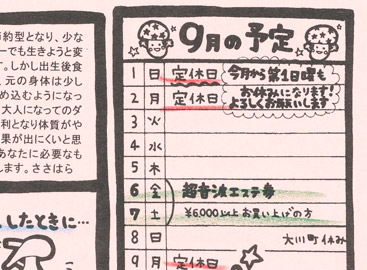 約型となり、少な
ーでも生きようと変
す。しかし出生後食
、元の身体は少し
め込むようになっ
大人になってのダ
利となり体質がや
果が出にくいと思
あなたに必要なも
します。ささはら
したときに…
9月の予定
1 日 定休日 今月から第1日曜も
お休みになります!
よろしくお願いします
2 月 定休日
3 火
4 水
5 木
6 金 超音波エステ券
7 土 ¥6,000以上お買い上げの方
8 日 大川町休み
9 月 定休日